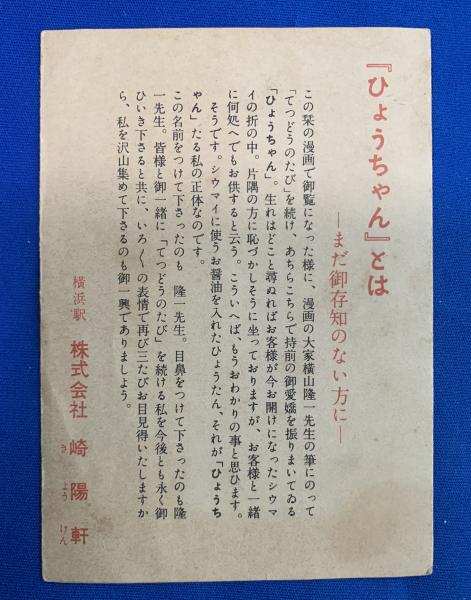 『ひょうちゃん』とは
―まだ御存知のない方に―
この栞の漫画で御覧になった様に、漫画の大家横山隆一先生の筆にのって
「てつどうのたび」を続け、あちらこちらで持前の御愛嬌を振りまいてゐる
「ひょうちゃん」。生れはどこと尋ぬればお客様が今お開けになったシウマ
イの折の中。片隅の方に恥づかしそうに坐っておりますが、お客様と一緒
に何処へでもお供すると云う。こういへば、もうおわかりの事と思ひます。
そうです。シウマイに使うお醤油を入れたひょうたん、それが「ひょうち
ゃん」たる私の正体なのです。
この名前をつけて下さったのも　隆一先生。目鼻をつけて下さったのも隆
一先生。皆様と御一緒に「てつどうのたび」を続ける私を今後とも永く御
ひいき下さると共に、いろ〱の表情で再び三たびお目見得いたしますか
ら、私を沢山集めて下さるのも御一興でありましょう。
横浜駅　株式会社　崎陽軒
きようけん